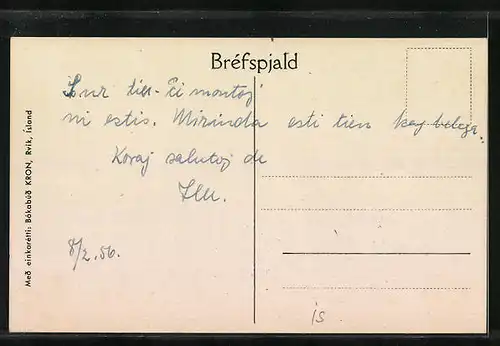 Bréfspjald
Sur tiu-ĉi montoj
ni estis. Mirinda esti tien kaj belega.
Koraj salutoj de
8/2.56.
is
Með einkarétti: Bókabúð KRON, Rvík, Ísland